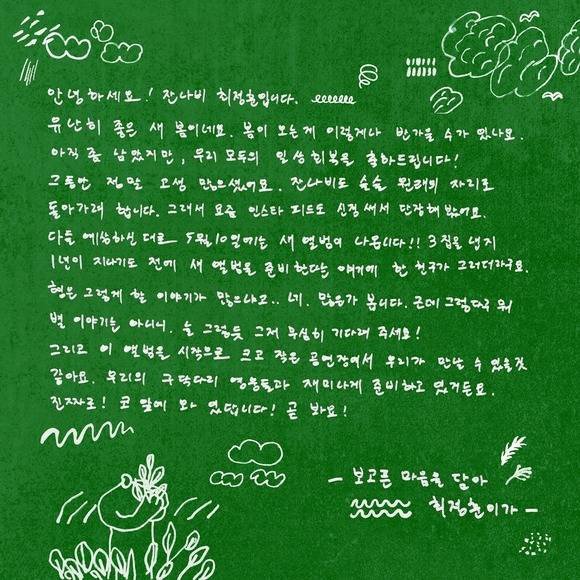 안녕하세요! 잔나비 최정훈입니다.
유난히 좋은 새 봄이네요. 봄이 오는게 이렇게나 반가울 수가 있나요.
아직 좀 남았지만, 우리 모두의 일상회복을 축하드립니다!
그동안 정말 고생 많으셨어요. 잔나비도 슬슬 원래의 자리로
돌아가려 합니다. 그래서 요즘 인스타 피드도 신경써서 단장해 봤어요.
다들 예상하신 대로 5월10일에는 새 앨범이 나옵니다!! 3집을 낸지
1년이 지나기도 전에 새 앨범을 준비한다는 얘기에 한 친구가 그러더라구요.
형은 그렇게 할 이야기가 많으냐고.. 네. 많은가 봅니다. 근데 그렇다구 뭐
별 이야기는 아니니. 늘 그렇듯 그저 무심히 기다려 주세요!
그리고 이 앨범을 시작으로 크고 작은 공연장에서 우리가 만날 수 있을것
같아요. 우리의 구닥다리 영웅들과 재미나게 준비하고 있거든요.
진짜로! 코 앞에 와 있답니다! 곧 봐요!
- 보고픈 마음을 담아
최정훈이가 -